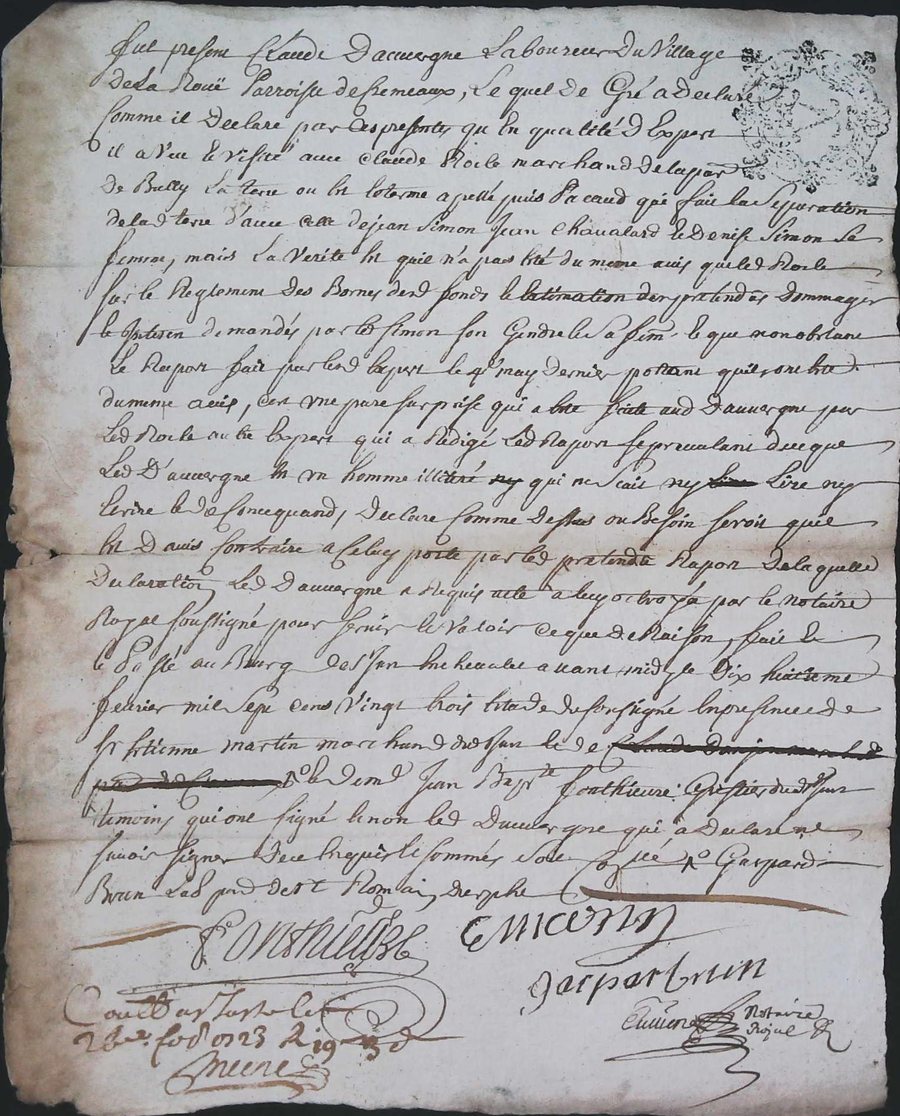 fut present Claude Dauvergne Laboureur Du Village
De La Rouë Parroisse de Cremeaux, Le quel de Gré a declaré
Comme il Declare par Ces presentes qu En qualité d Expert
il a Veu et Visité avec Claude Roile marchand de la par
De Bully La terre ou est le terme apellé puis Pacaud qui fait la Separation
de lad terre d'avec celle de jean Simon Jean Chavalard et Denise Simon Sa
femme, mais La Verité Est quil n'a pas Esté du meme avis que led Roile
sur le Reglement Des Bornes desd fonds et lestimation des pretendus Dommages
et demandés par led Simon son Gendre et Sa fem. et que nonobstant
Le Raport fait par lesd Expert le may Dernier portant quils ont Esté
du meme avis, c'est une pure surprise qui a Esté faite aud Dauvergne par
Led Roile autre Expert qui a Redigé Led Raport se prevalant de ce que
Led D'auvergne Est un homme illitéré qui ne Scait ny Lire ny
Ecrire et de Consequand, Declare Comme Dessus ou Besoin seroit quil
Est D avis Contraire a Celuy porté par led pretendu Raport De laquelle
Declaration Led Dauvergne a Requis acte a luy octroyé par le notaire
Royal soussigné pour servir et Valoir Ce que de Raison, fait Et
Passé au Bourg de St Jun avant midy le Dix huitieme
fevrier mil Sept Cens Vingt trois En presence de
Sr Estienne Martin marchand dud St Jun et de
Jean Bapte Ponthieure Cristier dud St Jun
temoins qui ont signé et non led Dauvergne qui a Declaré ne
savoir signer De ce Enquis et sommé Gaspard
Brun Lab prd de St Romain Durphé
Ponthieure EMartin
gaspar brun
Notaire
Royal
Con St Just
23 R 19